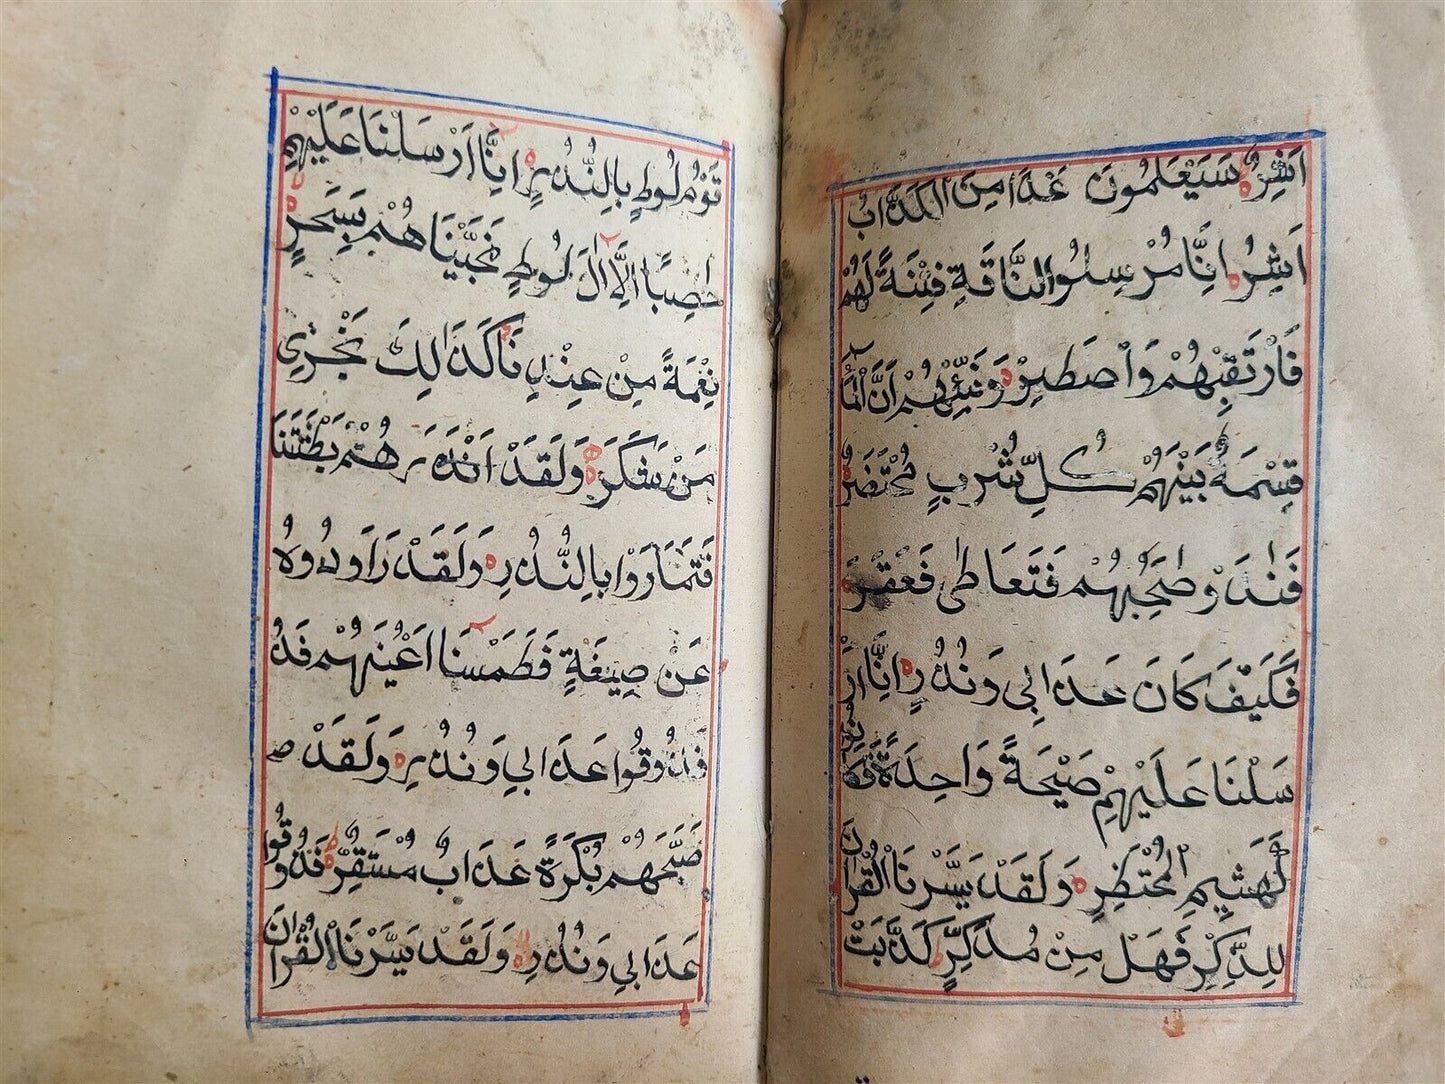 اَشِرٌ سَيَعْلَمُونَ غَدًا مِنَ الْكَذَّابُ
اَشِرُ اِنَّا مُرْسِلُوا النَّاقَةِ فِتْنَةً لَهُمْ
فَارْتَقِبْهُمْ وَاصْطَبِرْ وَنَبِّئْهُمْ اَنَّ الْمَا
قِسْمَةٌ بَيْنَهُمْ كُلِّ شُرْبٍ مُحْتَضَرٌ
فَنَادَوْ صٰحِبُهُمْ فَتَعَاطٰى فَعَقَرَ
فَكَيْفَ كَانَ عَذَابِي وَنُذُرِ اِنَّا اَرْ
سَلْنَا عَلَيْهِمْ صَيْحَةً وَاحِدَةً فَكَانُو
لَهَشِيمِ الْمُحْتَظِرِ وَلَقَدْ يَسَّرْنَا الْقُرْانَ
لِلذِّكْرِ فَهَلْ مِنْ مُدَّكِرٍ كَذَّبَتْ
قَوْمُ لُوطٍ بِالنُّذُرِ اِنَّا اَرْسَلْنَا عَلَيْهِمْ
حَاصِبًا اِلَّا اٰلَ لُوطٍ نَجَّيْنَاهُمْ بِسَحَرٍ
نِعْمَةً مِنْ عِنْدِنَا كَذَالِكَ نَجْزِي
مَنْ شَكَرَ وَلَقَدْ اَنْذَرَهُمْ بَطْشَتَنَا
فَتَمَارَوْا بِالنُّذُرِ وَلَقَدْ رَاوَدُوهُ
عَنْ ضِيفَةٍ فَطَمَسْنَا اَعْيُنَهُمْ فَذُ
فَذُوقُوا عَذَابِي وَنُذُرِ وَلَقَدْ صـ
صَبَّحَهُمْ بُكْرَةً عَذَابٌ مُسْتَقِرٌّ فَذُوقُوا
عَذَابِي وَنُذُرِ وَلَقَدْ يَسَّرْنَا الْقُرْانَ